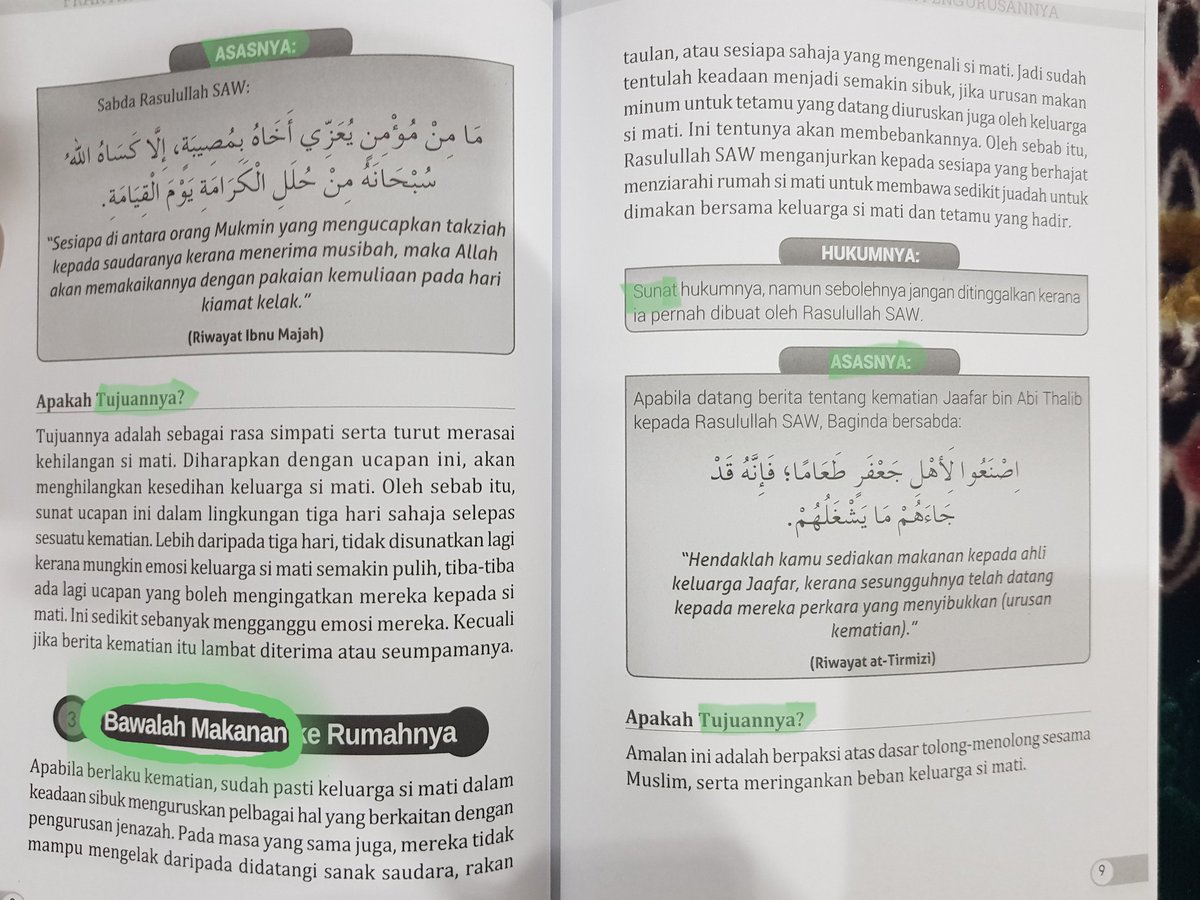 ASASNYA:
Sabda Rasulullah SAW:
مَا مِنْ مُؤْمِنٍ يُعَزِّي أَخَاهُ بِمُصِيبَةٍ، إِلَّا كَسَاهُ اللهُ
سُبْحَانَهُ مِنْ حُلَلِ الْكَرَامَةِ يَوْمَ الْقِيَامَةِ.
“Sesiapa di antara orang Mukmin yang mengucapkan takziah
kepada saudaranya kerana menerima musibah, maka Allah
akan memakaikannya dengan pakaian kemuliaan pada hari
kiamat kelak.”
(Riwayat Ibnu Majah)
Apakah Tujuannya?
Tujuannya adalah sebagai rasa simpati serta turut merasai
kehilangan si mati. Diharapkan dengan ucapan ini, akan
menghilangkan kesedihan keluarga si mati. Oleh sebab itu,
sunat ucapan ini dalam lingkungan tiga hari sahaja selepas
sesuatu kematian. Lebih daripada tiga hari, tidak disunatkan lagi
kerana mungkin emosi keluarga si mati semakin pulih, tiba-tiba
ada lagi ucapan yang boleh mengingatkan mereka kepada si
mati. Ini sedikit sebanyak mengganggu emosi mereka. Kecuali
jika berita kematian itu lambat diterima atau seumpamanya.
3 Bawalah Makanan ke Rumahnya
Apabila berlaku kematian, sudah pasti keluarga si mati dalam
keadaan sibuk menguruskan pelbagai hal yang berkaitan dengan
pengurusan jenazah. Pada masa yang sama juga, mereka tidak
mampu mengelak daripada didatangi sanak saudara, rakan
PENGURUSANNYA
taulan, atau sesiapa sahaja yang mengenali si mati. Jadi sudah
tentulah keadaan menjadi semakin sibuk, jika urusan makan
minum untuk tetamu yang datang diuruskan juga oleh keluarga
si mati. Ini tentunya akan membebankannya. Oleh sebab itu,
Rasulullah SAW menganjurkan kepada sesiapa yang berhajat
menziarahi rumah si mati untuk membawa sedikit juadah untuk
dimakan bersama keluarga si mati dan tetamu yang hadir.
HUKUMNYA:
Sunat hukumnya, namun sebolehnya jangan ditinggalkan kerana
ia pernah dibuat oleh Rasulullah SAW.
ASASNYA:
Apabila datang berita tentang kematian Jaafar bin Abi Thalib
kepada Rasulullah SAW, Baginda bersabda:
اِصْنَعُوا لِأَهْلِ جَعْفَرٍ طَعَامًا؛ فَإِنَّهُ قَدْ
جَاءَهُمْ مَا يَشْغَلُهُمْ.
“Hendaklah kamu sediakan makanan kepada ahli
keluarga Jaafar, kerana sesungguhnya telah datang
kepada mereka perkara yang menyibukkan (urusan
kematian).”
(Riwayat at-Tirmizi)
Apakah Tujuannya?
Amalan ini adalah berpaksi atas dasar tolong-menolong sesama
Muslim, serta meringankan beban keluarga si mati.
9